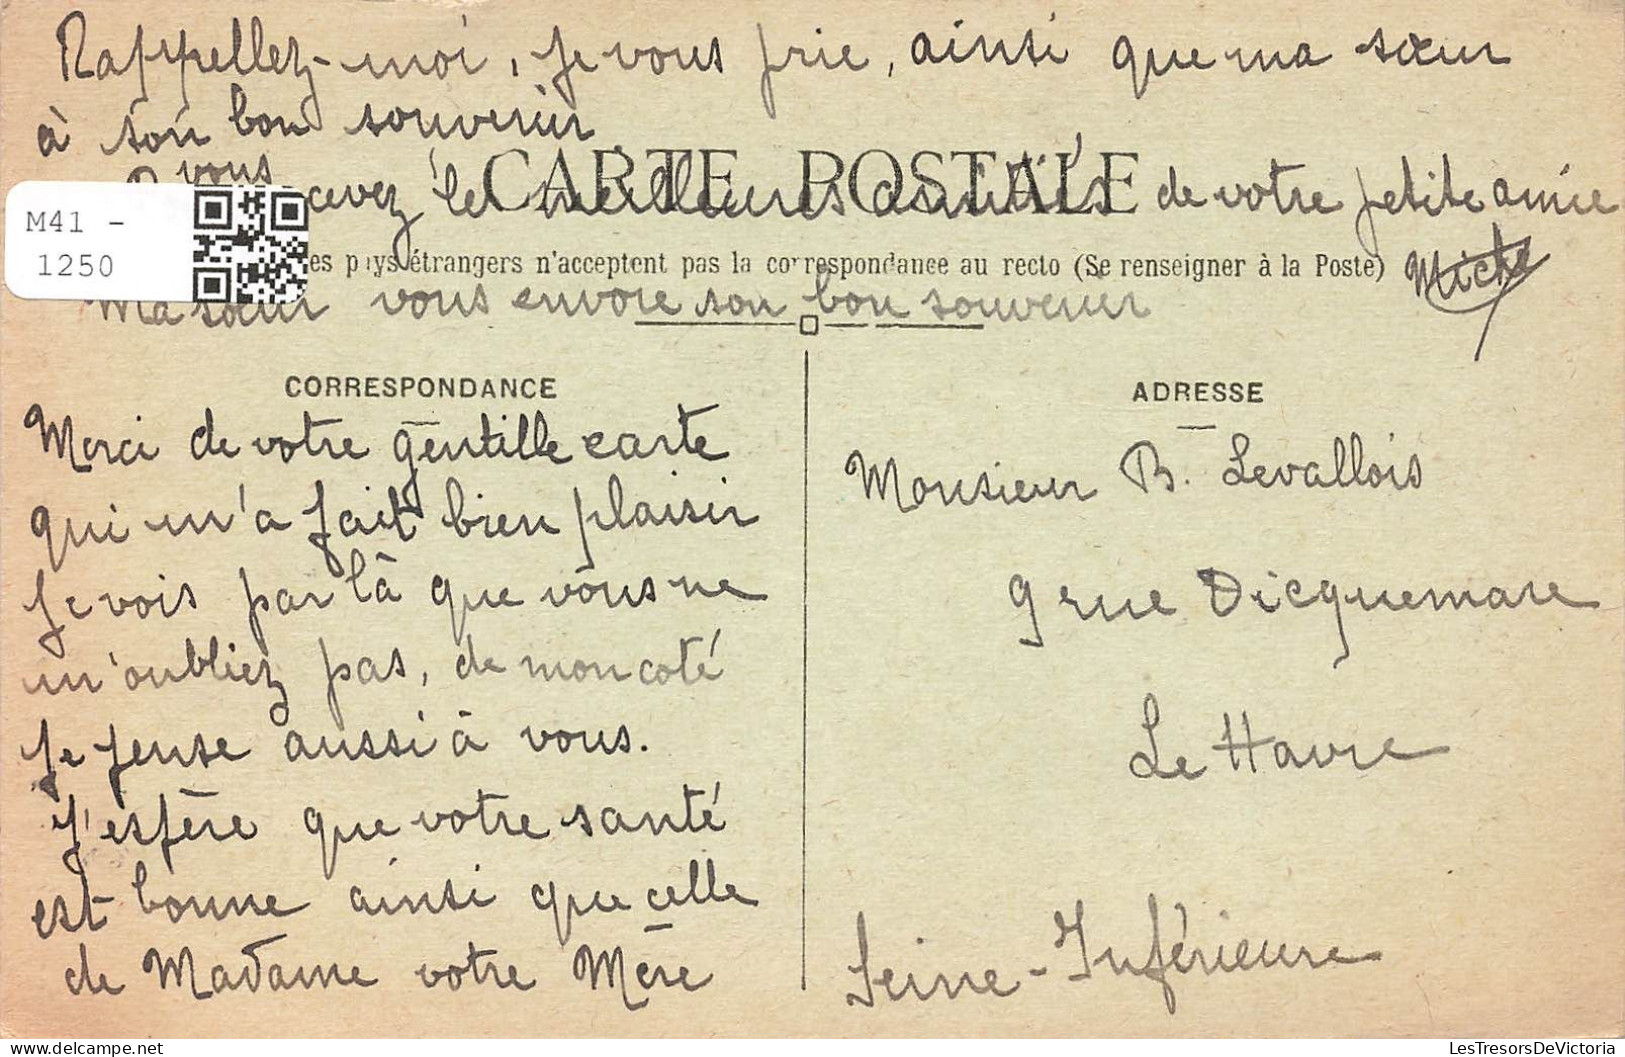 Rappellez-moi, je vous prie, ainsi que ma sœur
à son bon souvenir
vous
cevez les meilleures amitiés de votre petite amie
CARTE POSTALE
M41 -
1250
es pays étrangers n'acceptent pas la correspondance au recto (Se renseigner à la Poste)
Miche
Ma sœur vous envoie son bon souvenir
CORRESPONDANCE
Merci de votre gentille carte
qui m'a fait bien plaisir
Je vois par là que vous ne
m'oubliez pas, de mon coté
Je pense aussi à vous.
J'espère que votre santé
est bonne ainsi que celle
de Madame votre Mère
ADRESSE
Monsieur B. Levallois
9 rue Dicquemare
Le Havre
Seine-Inférieure
LesTresorsDeVictoria
delcampe.net